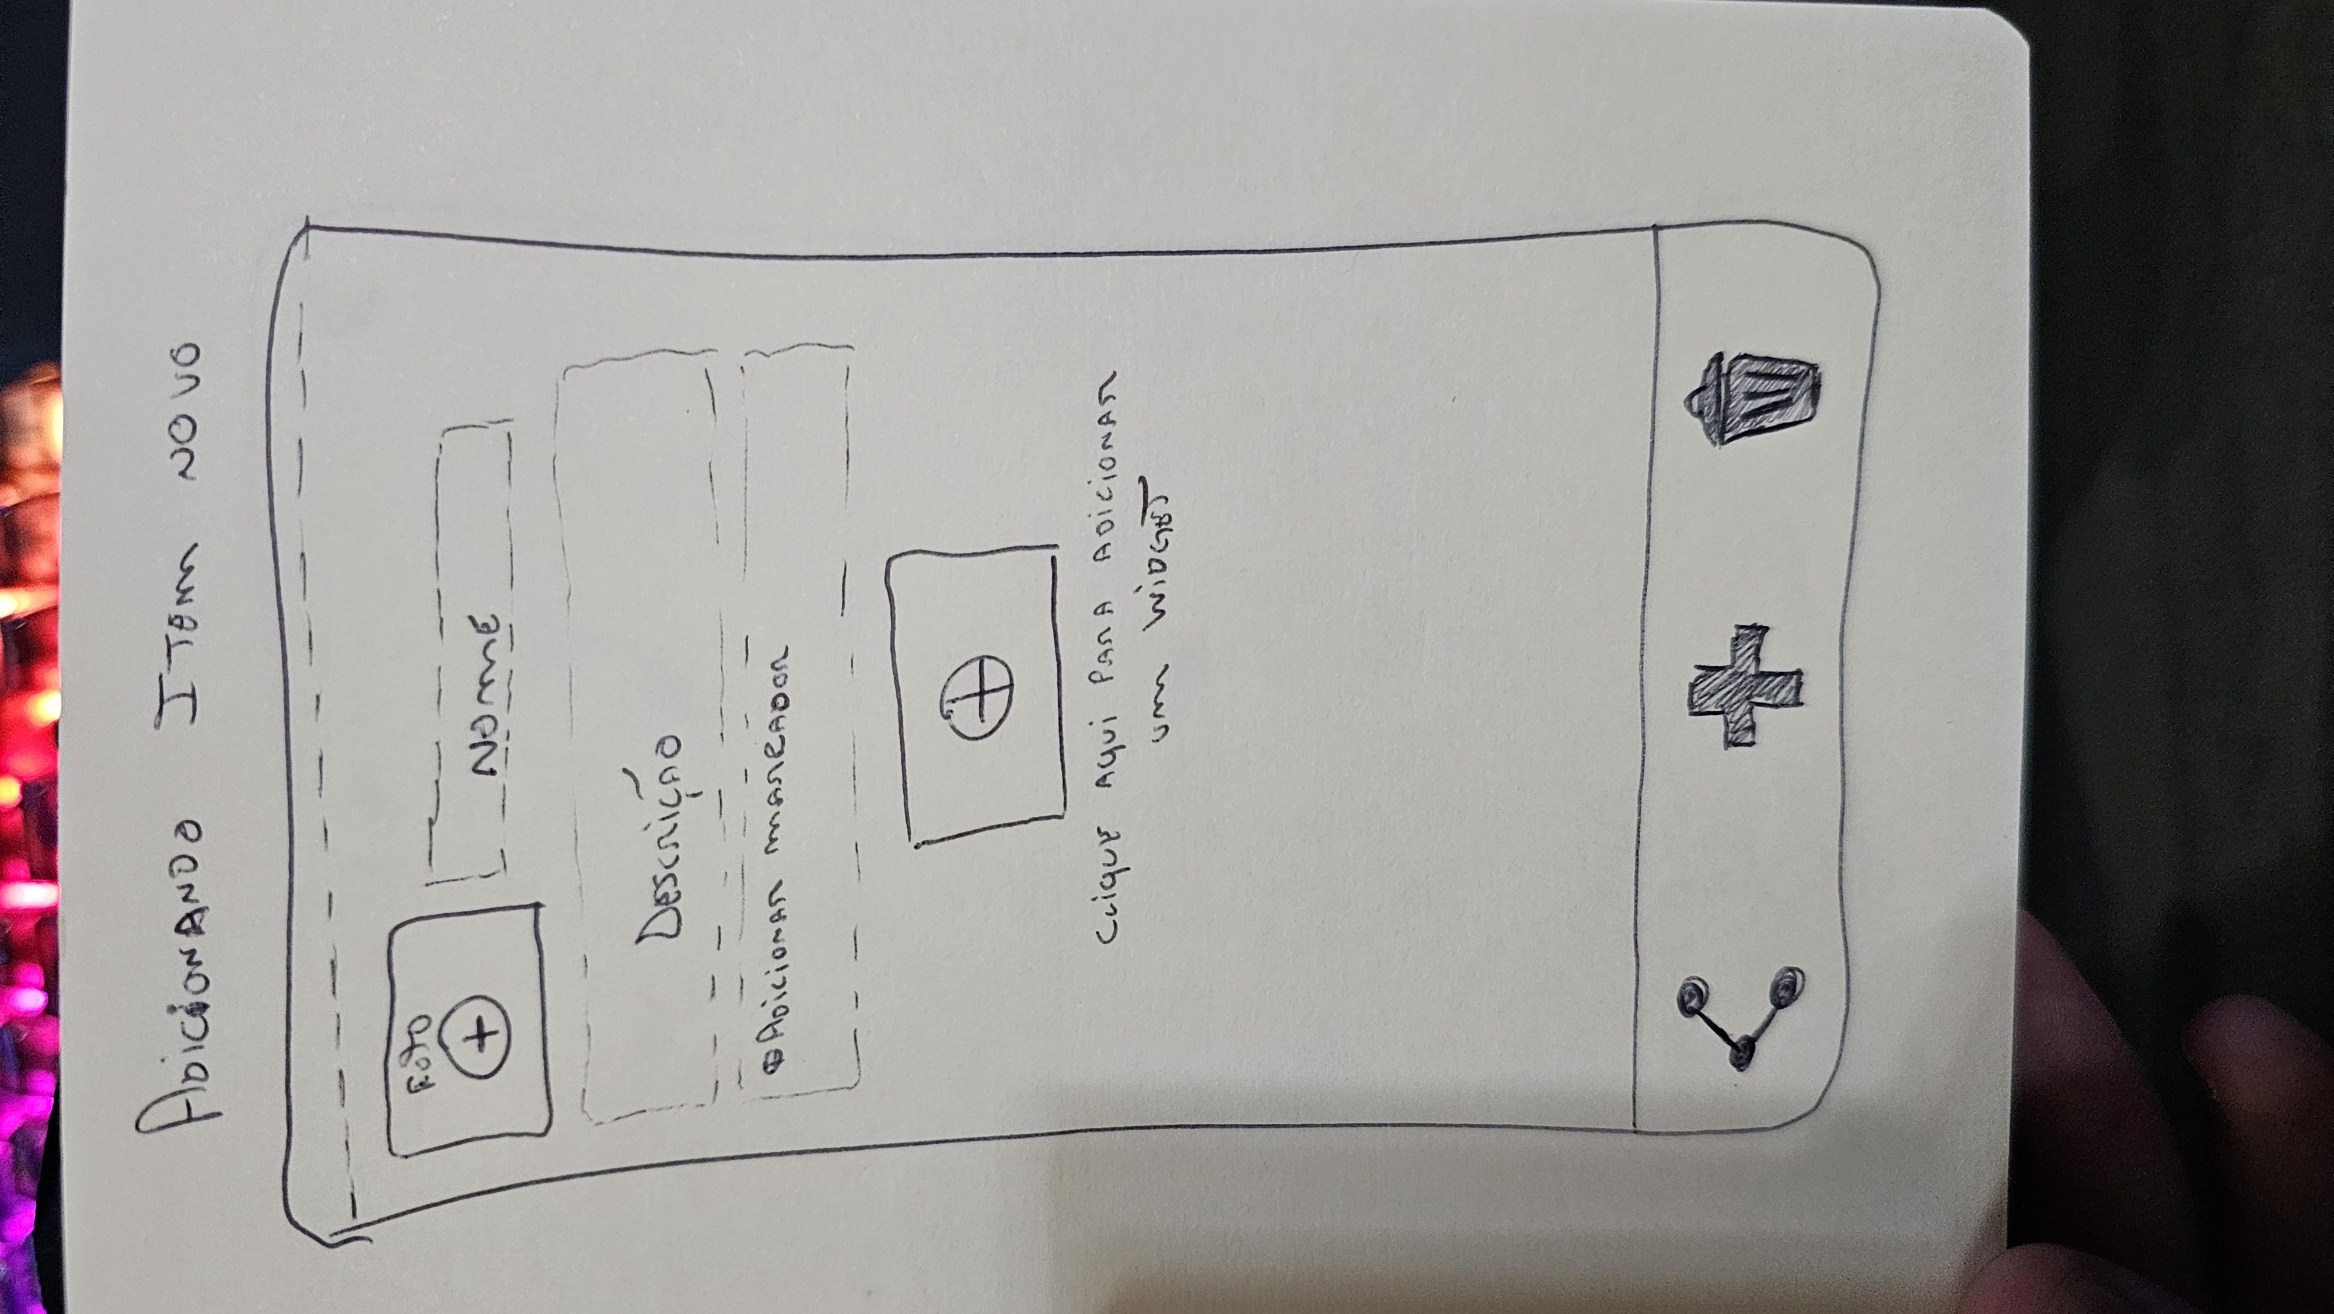 ADICIONANDO ITEM NOVO
FOTO
NOME
DESCRIÇÃO
ADICIONAR MARCADOR
CLIQUE AQUI PARA ADICIONAR
UM WIDGET